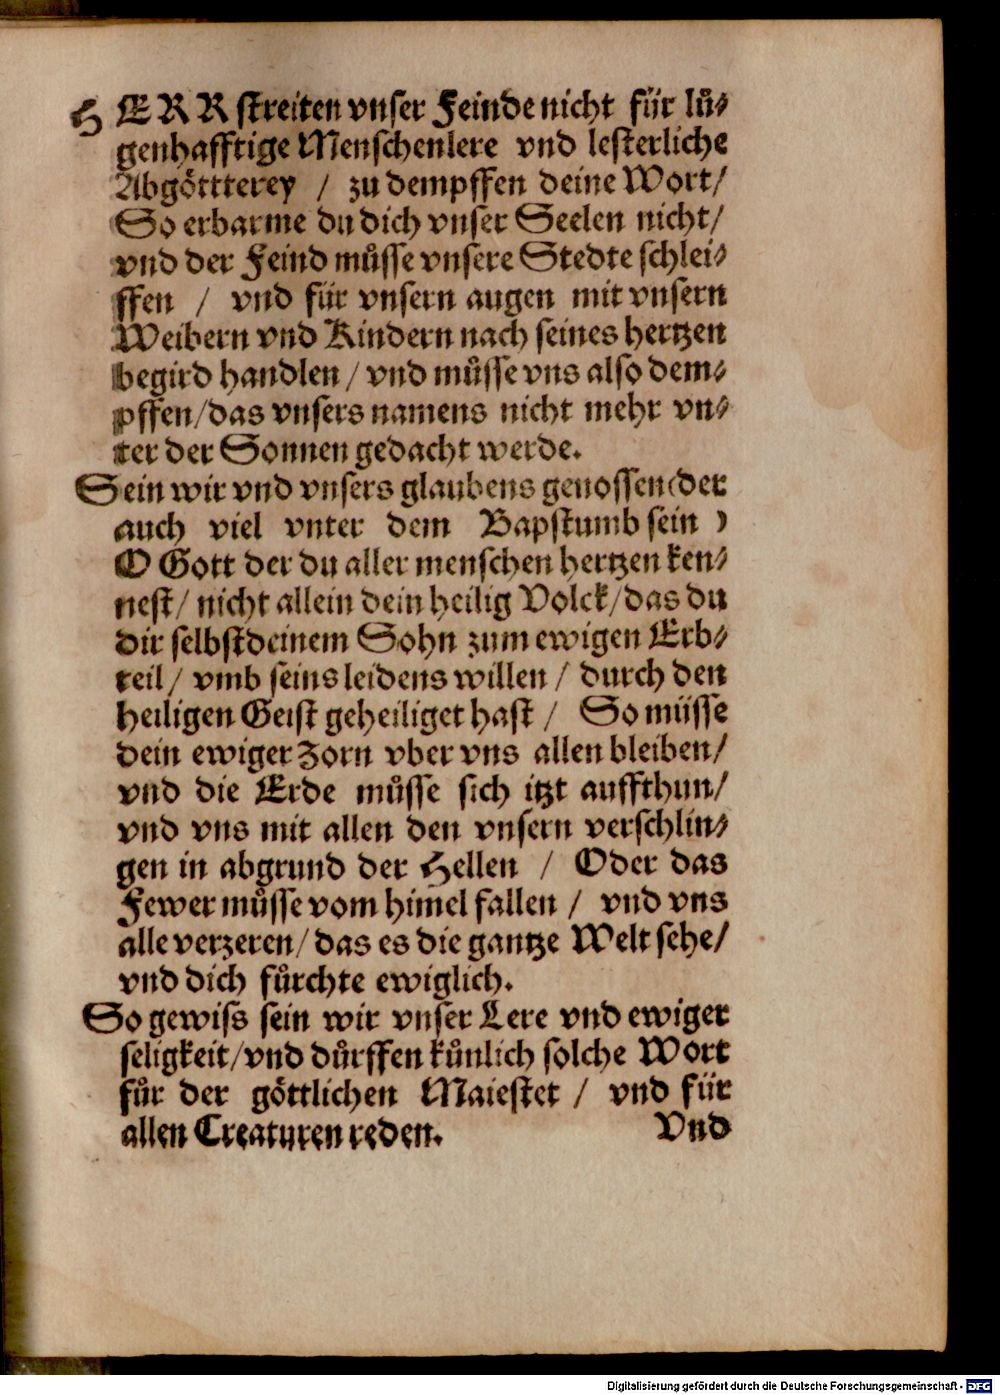 HERR streiten vnser Feinde nicht für lů⸗
genhafftige Menschenlere vnd lesterliche
Abgöttterey / zu dempffen deine Wort/
So erbarme du dich vnser Seelen nicht/
vnd der Feind můsse vnsere Stedte schlei⸗
ffen / vnd für vnsern augen mit vnsern
Weibern vnd Kindern nach seines hertzen
begird handlen / vnd můsse vns also dem⸗
pffen/das vnsers namens nicht mehr vn⸗
ter der Sonnen gedacht werde.
Sein wir vnd vnsers glaubens genossen (der
auch viel vnter dem Bapstumb sein )
O Gott der du aller menschen hertzen ken⸗
nest/ nicht allein dein heilig Volck/das du
dir selbst deinem Sohn zum ewigen Erb⸗
teil/ vmb seins leidens willen / durch den
heiligen Geist geheiliget hast / So müsse
dein ewiger Zorn vber vns allen bleiben/
vnd die Erde můsse sich itzt auffthun/
vnd vns mit allen den vnsern verschlin⸗
gen in abgrund der Hellen / Oder das
Fewer můsse vom himel fallen / vnd vns
alle verzeren/das es die gantze Welt sehe/
vnd dich fůrchte ewiglich.
So gewiss sein wir vnser Lere vnd ewiger
seligkeit/vnd důrffen kůnlich solche Wort
fůr der göttlichen Maiestet / vnd für
allen Creaturen reden. Vnd
Digitalisierung gefördert durch die Deutsche Forschungsgemeinschaft - DFG